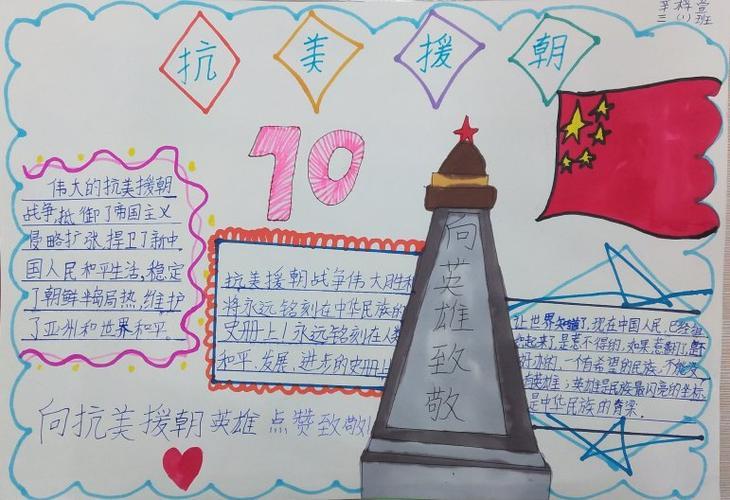 三(1)班
抗美援朝
70
伟大的抗美援朝
战争抵御了帝国主义
侵略扩张,捍卫了新中
国人民和平生活,稳定
了朝鲜半局热,维护
了亚洲和世界和平。
抗美援朝战争伟大胜利
将永远铭刻在中华民族的
史册上!永远铭刻在人类
和平、发展、进步的史册上
向英雄致敬
让世界知道了,现在中国人民已经组
起来了,是惹不得的,如果惹翻了是不
好办的,一个有希望的民族,不能没
有英雄;英雄是民族最闪亮的坐标
是中华民族的脊梁。
向抗美援朝英雄点赞致敬!